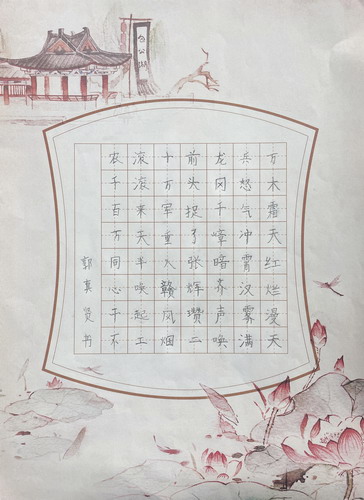 包公
万木霜天红烂漫天
兵怒气冲霄汉雾满
龙冈千嶂暗齐声唤
前头捉了张辉瓒二
十万军重入赣风烟
滚滚来天半唤起工
农千百万同心干不
郭真贤书